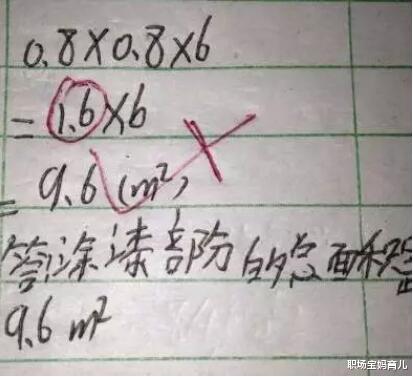 0.8×0.8×6
=1.6×6
=9.6(m²)
答涂漆部份的总面积是
9.6m²
职场宝妈育儿